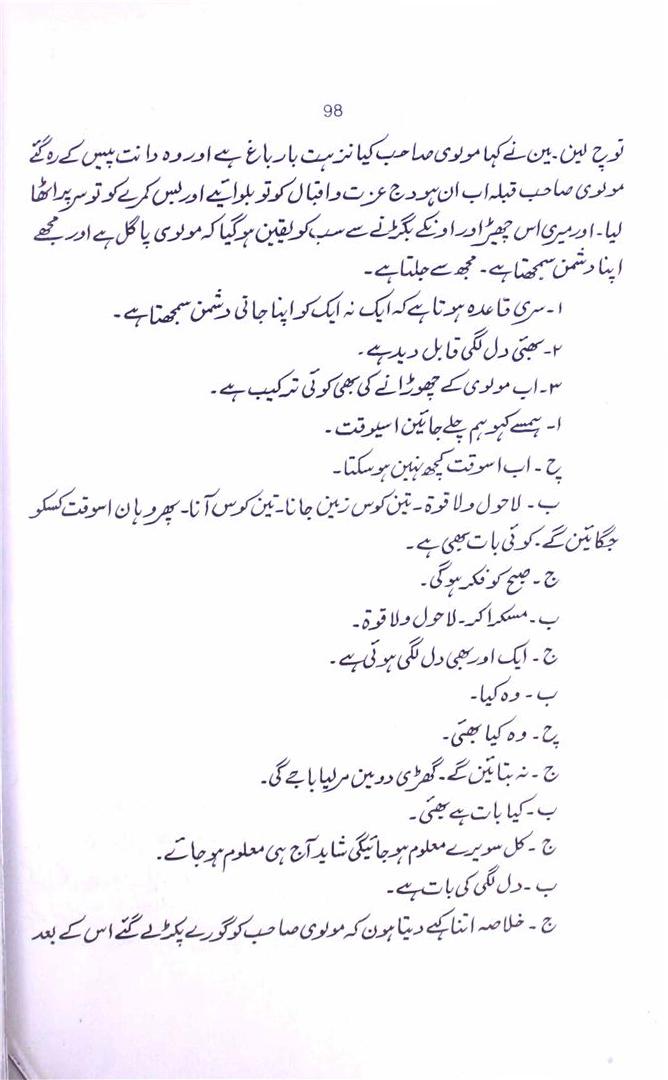 98
توچ لین۔ بین نے کہا مولوی صاحب کیا نزہت بار باغ ہے اور وہ دانت پیس کے رہ گئے
مولوی صاحب قبلہ اب ان ہودج عزت و اقبال کو تو بلوائیے اور بس کمرے کو تو سر پر اٹھا
لیا۔ اور میری اس چھیڑ اور اونکے بگڑنے سے سب کو یقین ہو گیا کہ مولوی پاگل ہے اور مجھے
اپنا دشمن سمجھتا ہے۔ مجھ سے جلتا ہے۔
۱۔ سری قاعدہ ہوتا ہے کہ ایک نہ ایک کو اپنا جانی دشمن سمجھتا ہے۔
۲۔ بھئی دل لگی قابل دید ہے۔
۳۔ اب مولوی کے چھوڑانے کی بھی کوئی ترکیب ہے۔
۱۔ ہمسے کہو ہم چلے جائین اسیوقت۔
ج۔ اب اسوقت کچھ نہین ہو سکتا۔
ب۔ لاحول ولا قوۃ۔ تین کوس زمین جانا۔ تین کوس آنا۔ پھر وہان اسوقت کسکو
جگائین گے۔ کوئی بات بھی ہے۔
ج۔ صبح کو فکر ہو گی۔
ب۔ مسکرا کر۔ لاحول ولا قوۃ۔
ج۔ ایک اور بھی دل لگی ہوئی ہے۔
ب۔ وہ کیا۔
ج۔ وہ کیا بھئی۔
ج۔ نہ بتائین گے۔ گھڑی دو مین مرلیا باجے گی۔
ب۔ کیا بات ہے بھئی۔
ج۔ کل سویرے معلوم ہو جائیگی شاید آج ہی معلوم ہو جائے۔
ب۔ دل لگی کی بات ہے۔
ج۔ خلاصہ اتنا کہے دیتا ہون کہ مولوی صاحب کو گورے پکڑ لے گئے اس کے بعد